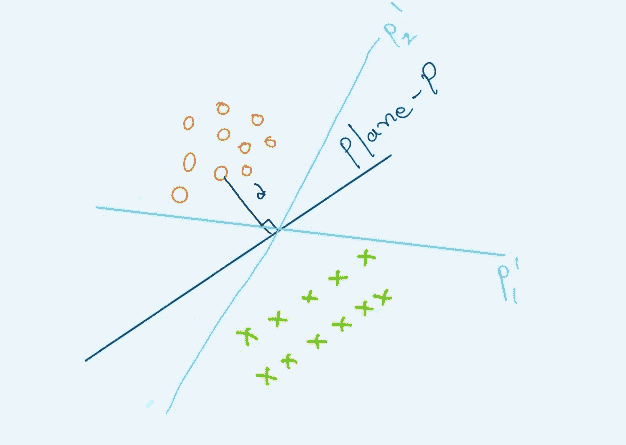 P₂'
Plane-P
d
P₁'